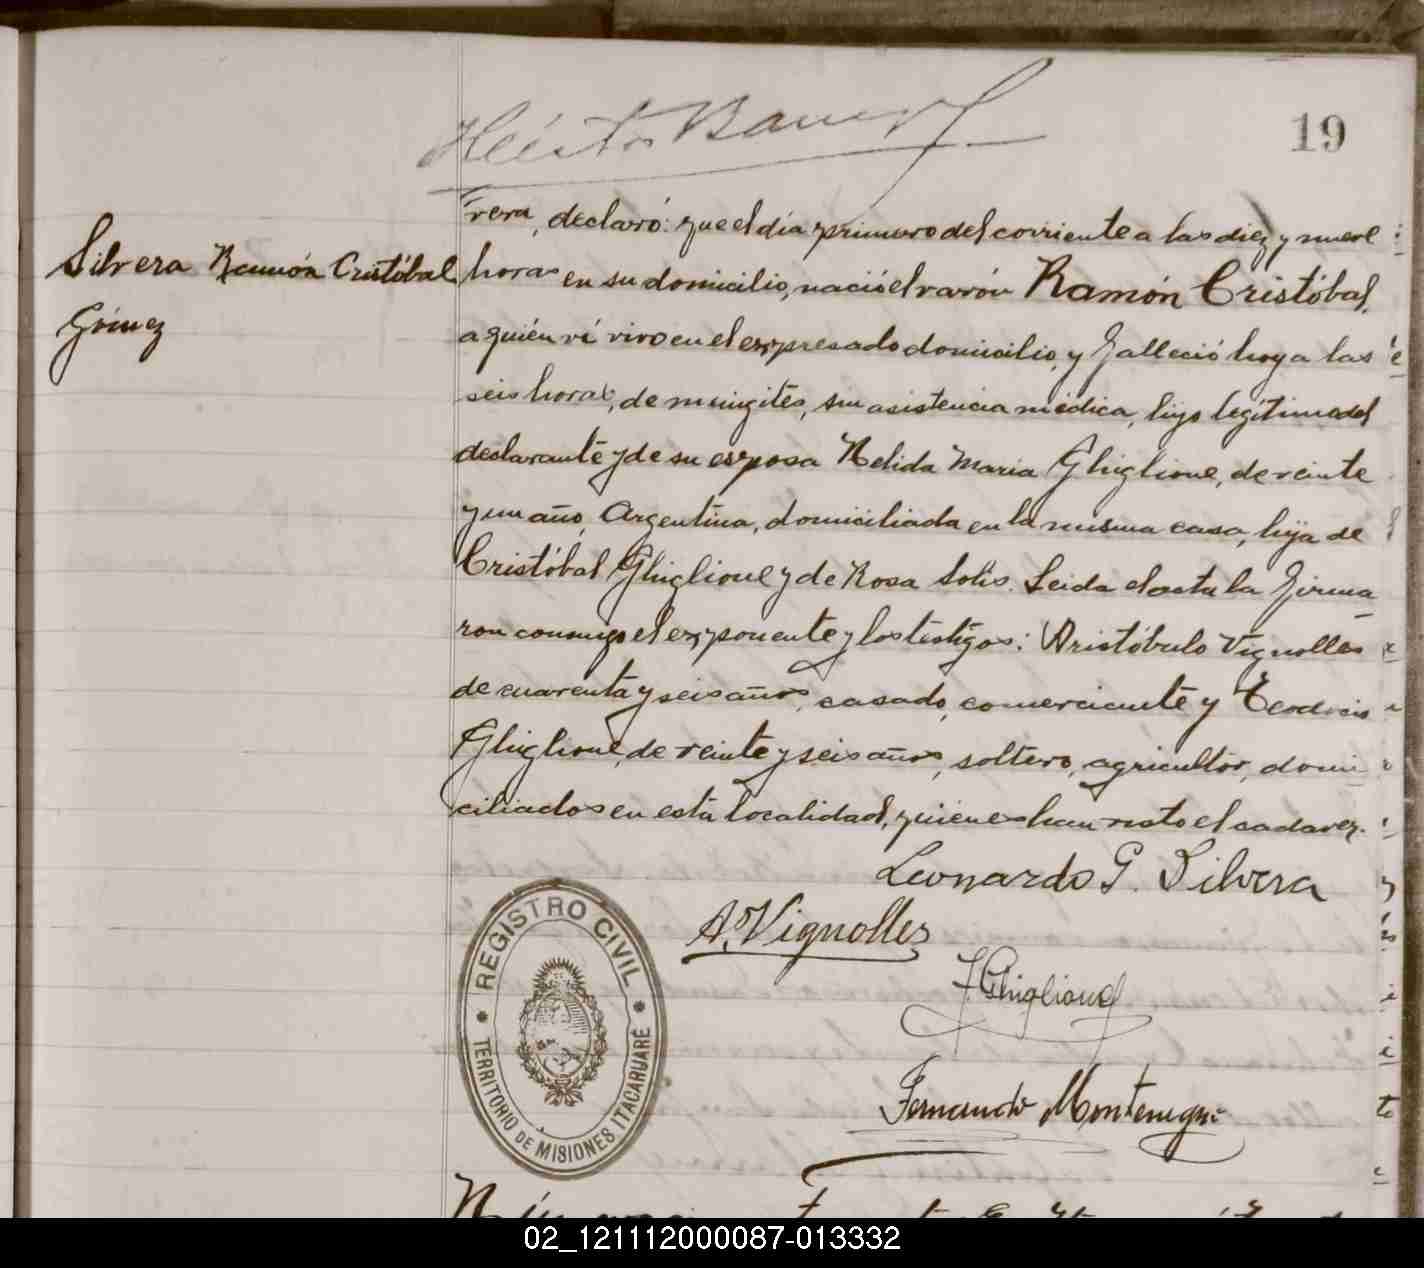 Héctor
19
Silvera Ramón Cristóbal
Gómez
rera, declaró: que el dia primero del corriente a las diez y nueve
horas en su domicilio, nació el varón Ramón Cristóbal,
a quién ví vivo en el expresado domicilio, y falleció hoy a las
seis horas, de meningites, sin asistencia médica, hijo legítimo del
declarante y de su esposa Nelida Maria Ghiglione, de veinte
y un año, Argentina, domiciliada en la misma casa, hija de
Cristóbal Ghiglione y de Rosa Solis. Leida el acta la firma
ron conmigo el exponente y los testigos: Aristóbulo Vignolles
de cuarenta y seis años, casado, comerciante y
Ghiglione, de veinte y seis años, soltero, agricultor, domi
ciliados en esta localidad, quienes han visto el cadaver.
Leonardo G. Silvera
A. Vignolles
Ghiglione
Fernando Montenegro
REGISTRO CIVIL
TERRITORIO DE MISIONES ITACARUARÉ
02_121112000087-013332